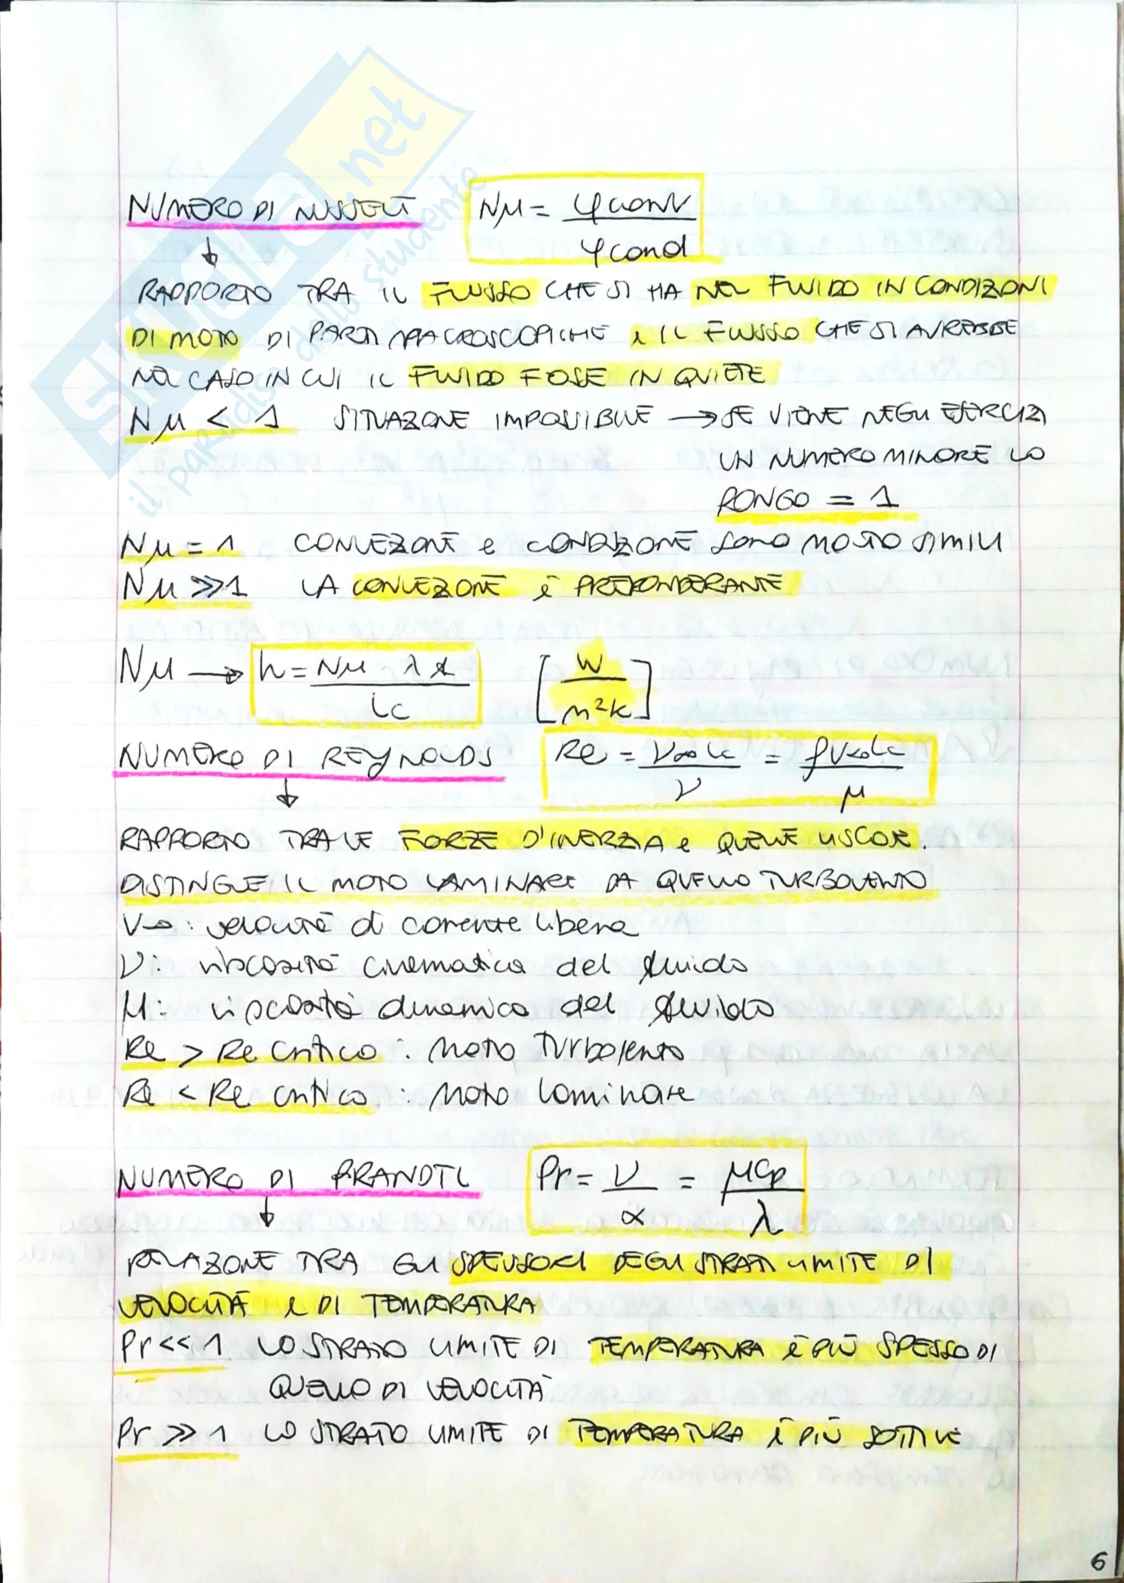 SKUOLA.net
il paradiso dello studente
NUMERO DI NUSSELT Nu = φconv / φcond
↓
RAPPORTO TRA IL FLUSSO CHE SI HA NEL FLUIDO IN CONDIZIONI
DI MOTO DI PARTI MACROSCOPICHE e IL FLUSSO CHE SI AVREBBE
NEL CASO IN CUI IL FLUIDO FOSSE IN QUIETE
Nu < 1 SITUAZIONE IMPOSSIBILE → SE VIENE NEGLI ESERCIZI
UN NUMERO MINORE LO
PONGO = 1
Nu = 1 CONVEZIONE e CONDUZIONE sono MOLTO SIMILI
Nu >> 1 LA CONVEZIONE è PREPONDERANTE
Nu → h = Nu λ / Lc [W / m²K]
NUMERO DI REYNOLDS Re = V∞Lc / ν = ρV∞Lc / μ
↓
RAPPORTO TRA LE FORZE D'INERZIA e QUELLE VISCOSE.
DISTINGUE IL MOTO LAMINARE DA QUELLO TURBOLENTO
V∞: velocità di corrente libera
ν: viscosità cinematica del fluido
μ: viscosità dinamica del fluido
Re > Re critico : moto Turbolento
Re < Re critico : moto Laminare
NUMERO DI PRANDTL Pr = ν / α = μcp / λ
↓
RELAZIONE TRA GLI SPESSORI DEGLI STRATI LIMITE DI
VELOCITÀ e DI TEMPERATURA
Pr << 1 LO STRATO LIMITE DI TEMPERATURA è PIÙ SPESSO DI
QUELLO DI VELOCITÀ
Pr >> 1 LO STRATO LIMITE DI TEMPERATURA è PIÙ SOTTILE
6